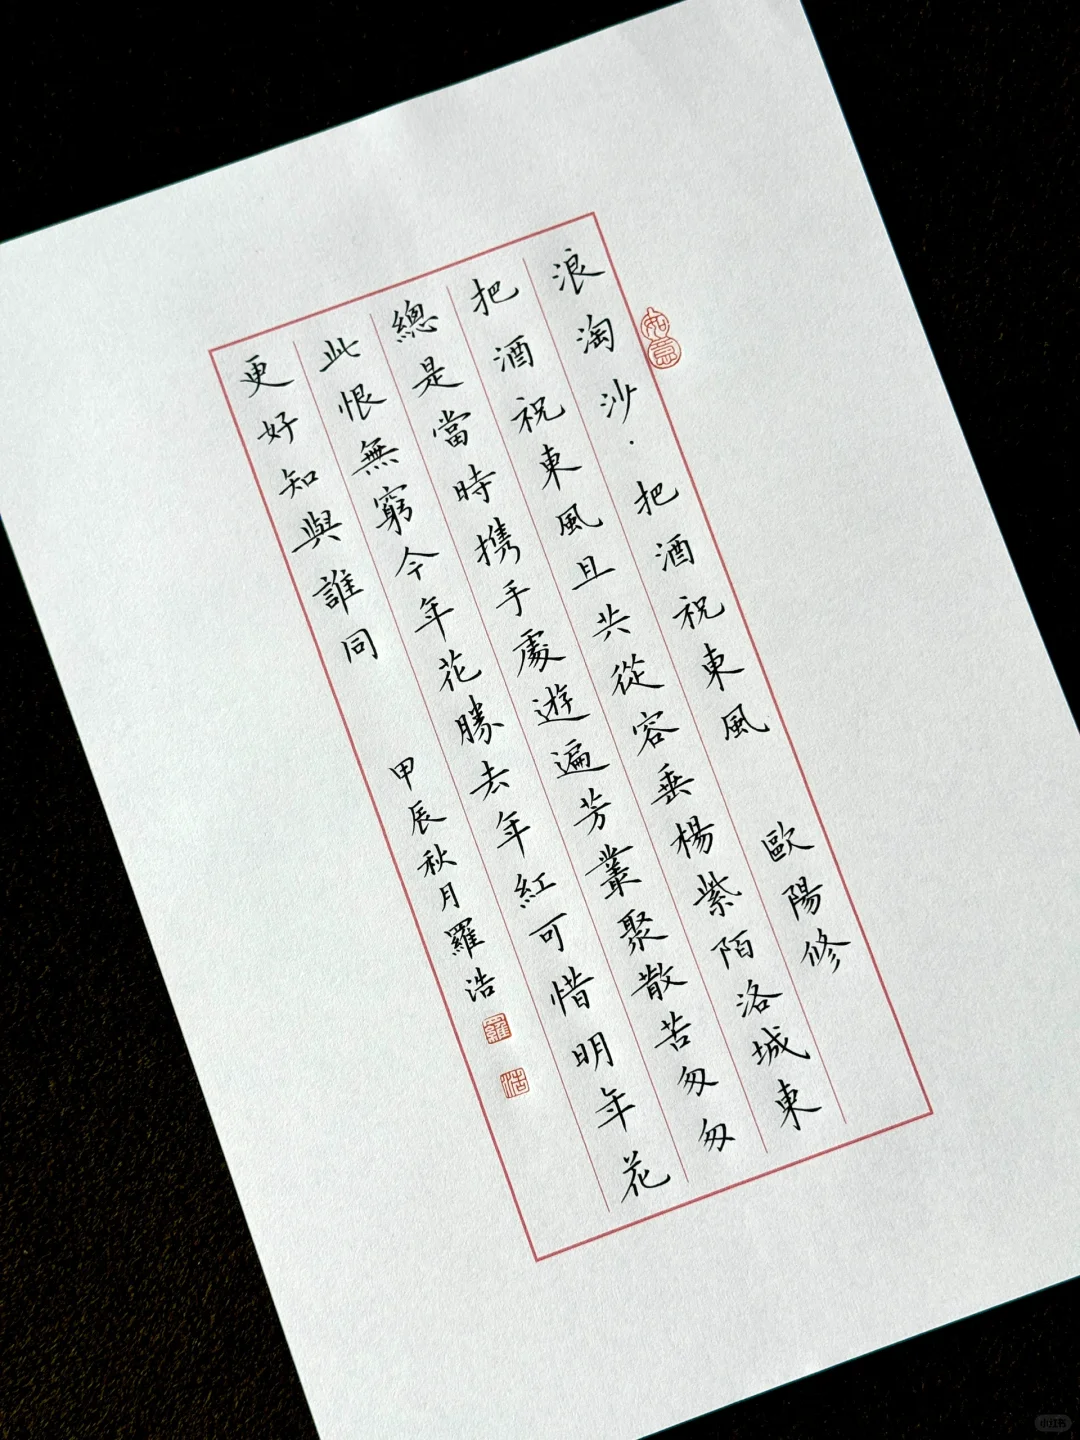 浪淘沙·把酒祝東風 歐陽修
把酒祝東風且共從容垂楊紫陌洛城東
總是當時携手處遊遍芳叢聚散苦匆匆
此恨無窮今年花勝去年紅可惜明年花
更好知與誰同 甲辰秋月羅浩
如意
羅
浩
小红书